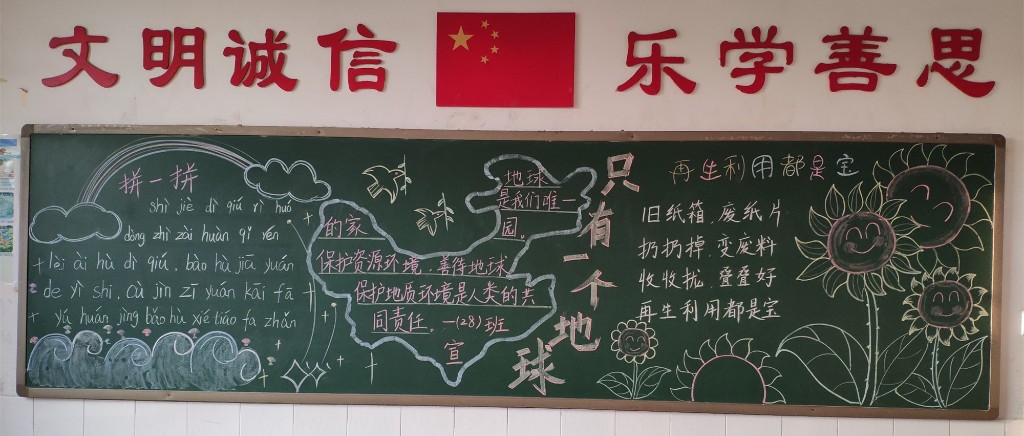 文明诚信
乐学善思
拼一拼
shì jiè dì qiú rì huó
dòng zhǐ zài huàn qǐ rén
lèi ài hù dì qiú, bǎo hù jiā yuán
de yì shi, cù jìn zī yuán kāi fā
yǔ huán jìng bǎo hù xié tiáo fa zhǎn
地球
是我们唯一
的家
园。
保护资源环境，善待地球
保护地质环境是人类的共
同责任。一(28)班
宣
只有一个地球
再生利用都是宝
旧纸箱，废纸片
扔扔掉，变废料
收收拢，叠叠好
再生利用都是宝